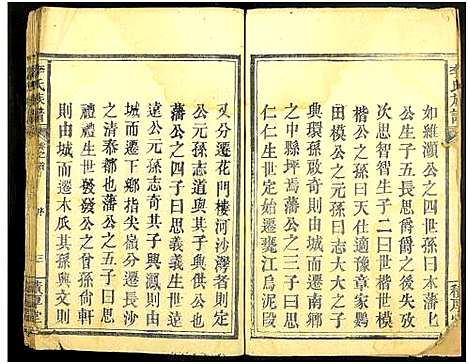 李氏族譜
如雍灝公之四世孫曰本藩化
公生子五長思爵爵之後失攷
次思智智生子二曰世楷世模
楷公之元孫曰天仕適豫章家鵝
田模公之元孫曰志大大之子
與環孫啟奇則由城而遷興鄉
之中縣坪其裔也藩公之三子曰
思仁仁生始遷甕江烏泥段
又分遷花門樓河沙灣者則仁
公元孫志道與其子與供公也
藩公之四子曰思義義生世遠
遠公元孫志奇其子與鳳則由
城而遷下鄉指尖嶺分遷長沙
之清泰都也藩公之五子曰思禮
禮生世發發公之裔曰尚軒
則由城而遷木瓜其孫與文則
李氏族譜
卷之首
序
三